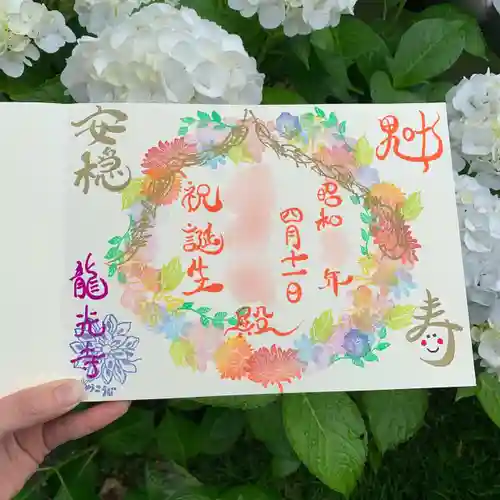 叶
昭和 年
四月十一日
殿
祝誕生
寿
安穏
龍光寺